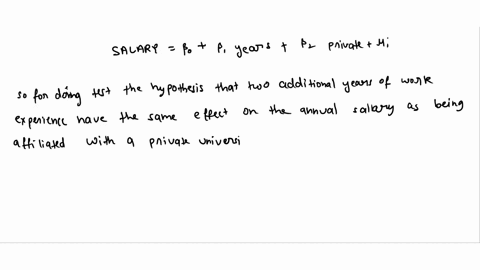 SALARY = β₀ + β₁ years + β₂ private + μᵢ
so for doing test the hypothesis that two additional years of work
experience have the same effect on the annual salary as being
affiliated with a private universi